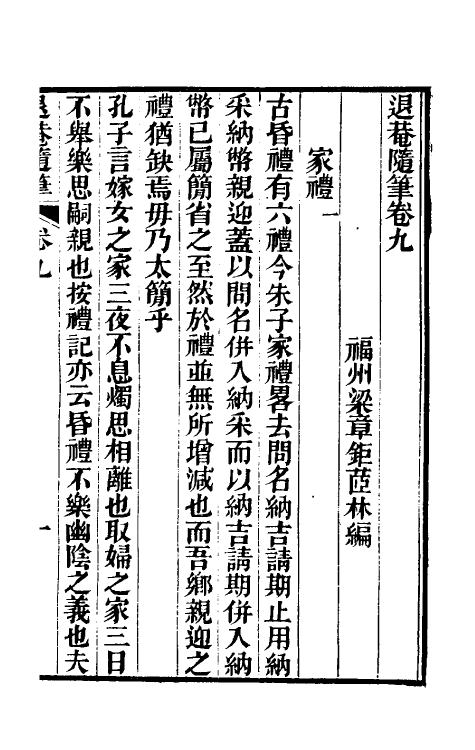 退菴隨筆卷九
福州梁章鉅茝林編
家禮一
古昏禮有六禮今朱子家禮畧去問名納吉請期止用納
采納幣親迎蓋以問名併入納采而以納吉請期併入納
幣已屬簡省之至然於禮並無所增減也而吾鄉親迎之
禮猶缺焉毋乃太簡乎
孔子言嫁女之家三夜不息燭思相離也取婦之家三日
不舉樂思嗣親也按禮記亦云昏禮不樂幽陰之義也夫
退菴隨筆 卷九 一